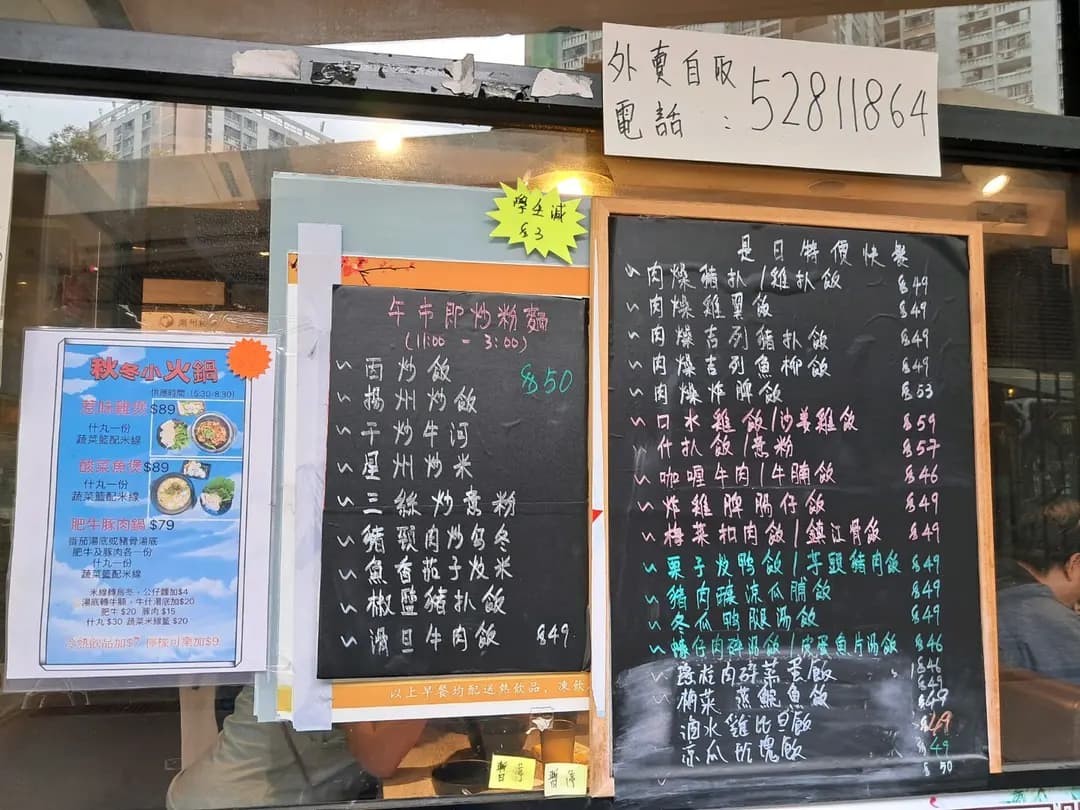 外賣自取
電話：52811864
學生減
$3
秋冬小火鍋
供應時間 (5:30-8:30)
$89
什丸一份
蔬菜籃配米線
酸菜魚煲$89
什丸一份
蔬菜籃配米線
肥牛豚肉鍋 $79
番茄湯底或豬骨湯底
肥牛及豚肉各一份
什丸一份
蔬菜籃配米線
米線轉烏冬，公仔麵加$4
肥牛 $20 豚肉 $15
什丸 $30 蔬菜米線籃 $20
加$7 加$9
午市即炒粉麵
(11:00 - 3:00)
西炒飯 $50
揚州炒飯
干炒牛河
星州炒米
三絲炒意粉
豬頸肉炒烏冬
魚香茄子炆米
椒鹽豬扒飯
滑旦牛肉飯 $49
以上早餐均配送熱飲品，凍飲
暫停
暫停
是日特價快餐
肉燥豬扒/雞扒飯 $49
肉燥雞翼飯 $49
肉燥吉列豬扒飯 $49
肉燥吉列魚柳飯 $49
肉燥炸脾飯 $53
口水雞飯/沙姜雞飯 $59
什扒飯/意粉 $57
咖喱牛肉/牛腩飯 $46
炸雞脾腸仔飯 $49
梅菜扣肉飯/鎮江骨飯 $49
栗子炆鴨飯/芋頭豬肉飯 $49
豬肉 涼瓜腩飯 $49
冬瓜鴨腿湯飯 $49
肉碎湯飯/皮蛋魚片湯飯 $46
肉碎蒸蛋飯 $46
$49
梅菜蒸鯇魚飯 $49
滷水雞比旦飯
涼瓜 飯 49
$50